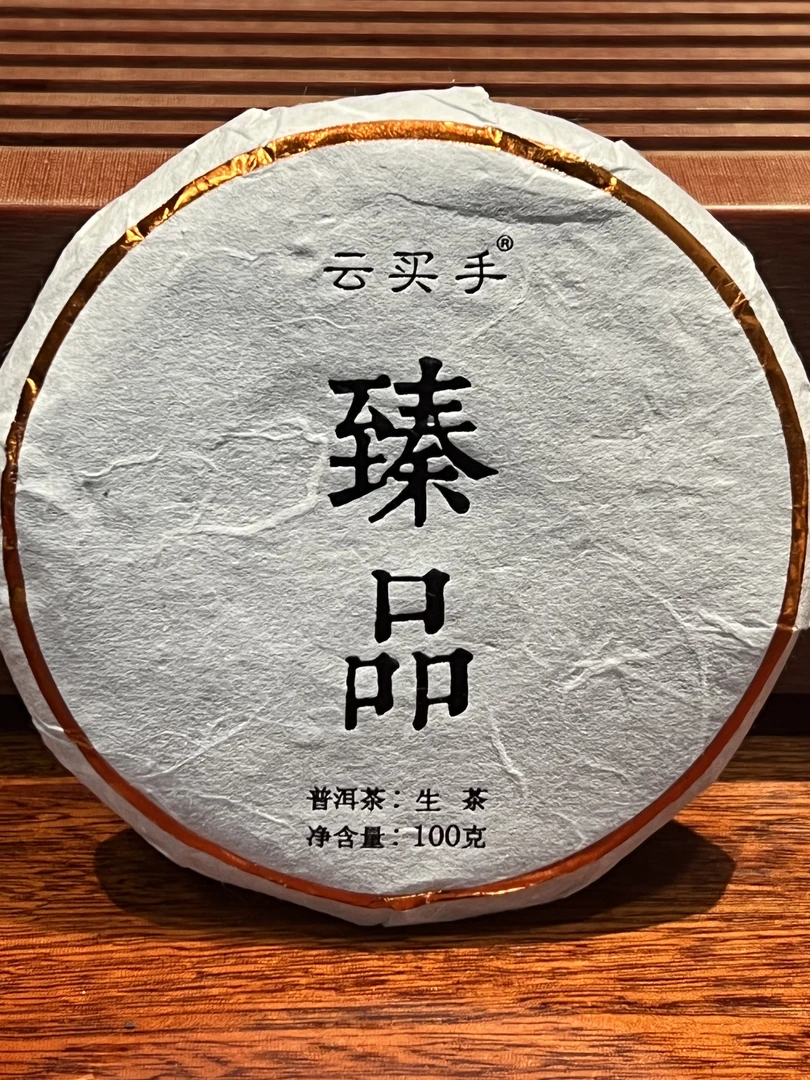 云买手®
臻品
普洱茶：生 茶
净含量：100克